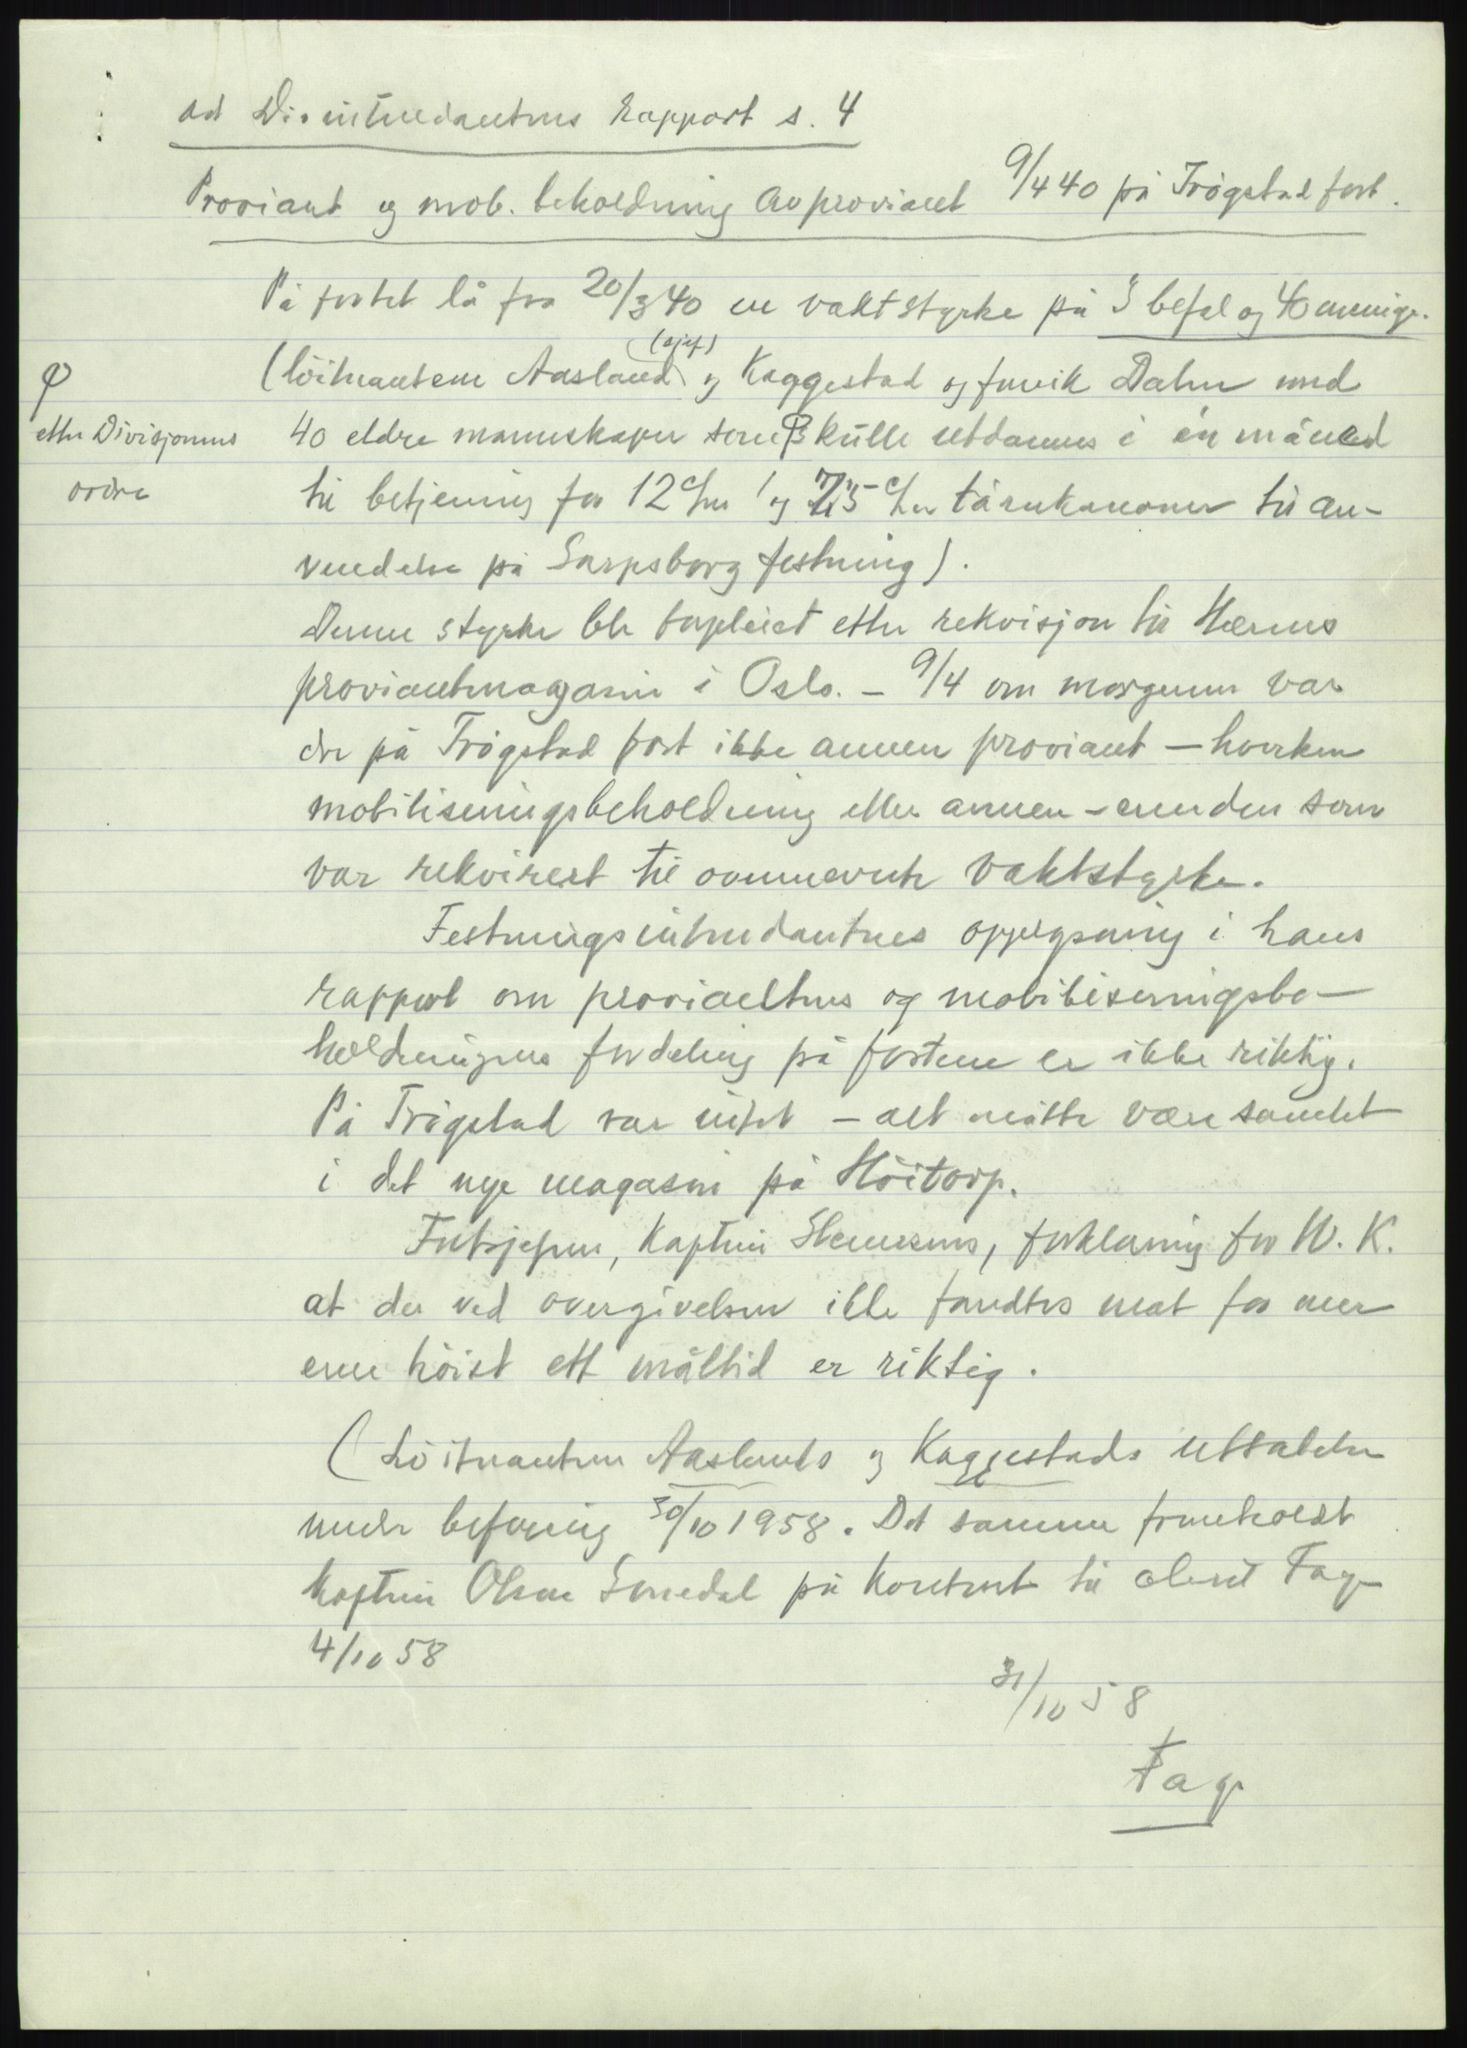 ad Div.intendantens rapport s. 4
Proviant og mob. beholdning av proviant 9/4 40 på Trøgstad fort.
På fortet lå fra 20/3 40 en vaktstyrke på 3 befal og 40 menige.
(sjef)
(løitnantene Aasland og Kaggestad og furik Dahn med
φ
etter Divisjonens
ordre
40 eldre mannskaper som φ skulle utdannes i én måned
til betjening for 12 cm og 7,5 cm tårnkanoner til an-
vendelse på Sarpsborg festning).
Denne styrke ble forpleiet etter rekvisjon til Hærens
proviantmagasin i Oslo. – 9/4 om morgenen var
der på Trøgstad fort ikke annen proviant – hverken
mobiliseringsbeholdning eller annen – enn den som
var rekvirert til ovennevnte vaktstyrke.
Festningsintendantens opplysning i hans
rapport om proviantens og mobiliseringsbe-
holdningens fordeling på fortene er ikke riktig.
På Trøgstad var intet – alt måtte være samlet
i det nye magasin på Höitorp.
Fortsjefen, Kaptein forklaring for W. K.
at der ved overgivelsen ikke fandtes mat for mer
enn höist ett måltid er riktig.
(Löitnantene Aaslands og Kaggestads uttalelse
under befaring 30/10 1958. Det samme fremholdt
Kaptein Olsen på kontoret til oberst Fage
4/10 58
31/10 58
Fage